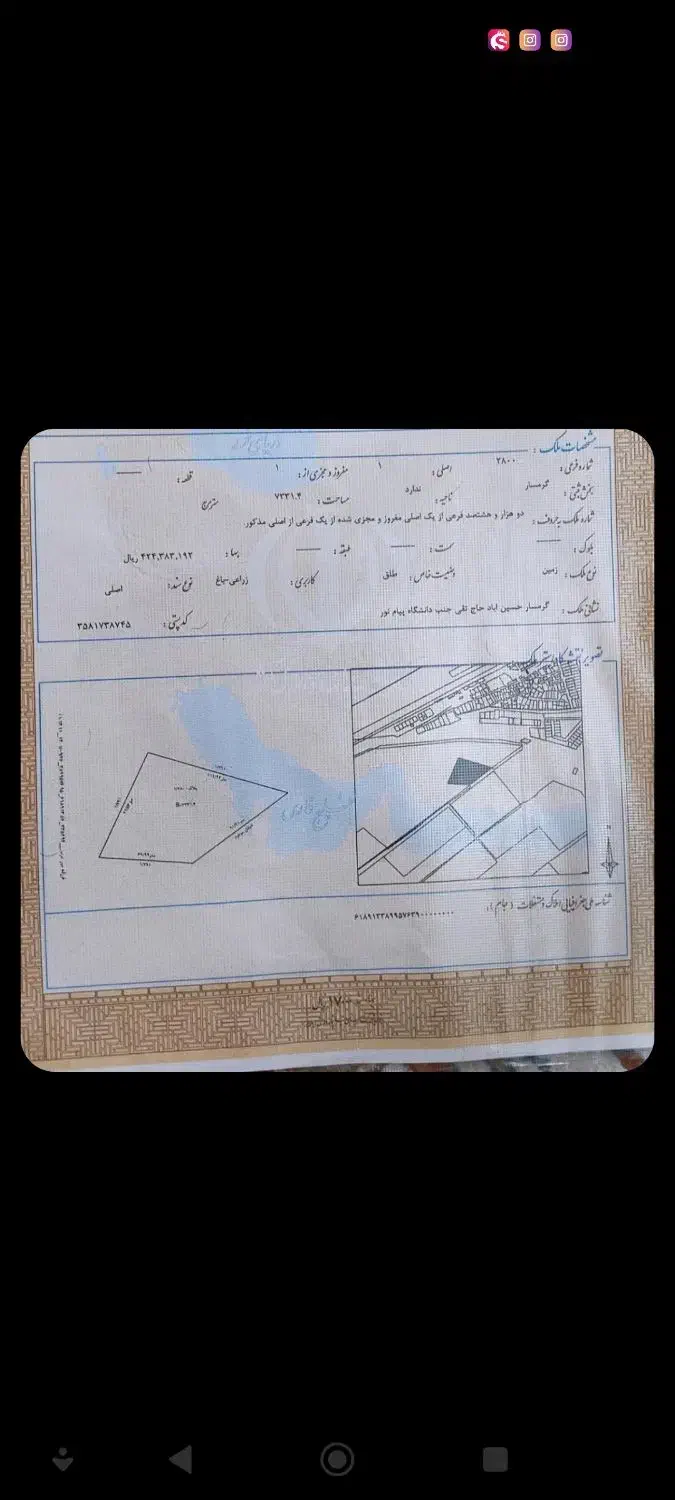 مشخصات ملک :
شماره فرعی : ۲۸۰۰ اصلی : ۱ مفروز و مجزی از : ۱ قطعه :
بخش ثبتی : گرمسار ناحیه : ندارد مساحت : ۷۳۳۱.۴ مترمربع
شماره ملک به حروف : دو هزار و هشتصد فرعی از یک اصلی مفروز و مجزی شده از یک فرعی از اصلی مذکور
بلوک : سمت : طبقه : بها : ۴۲۴,۳۸۳,۱۹۲ ریال
نوع ملک : زمین وضعیت خاص : طلق کاربری : زراعی-باغ نوع سند : اصلی
نشانی ملک : گرمسار حسین اباد حاج تقی جنب دانشگاه پیام نور کد پستی : ۳۵۸۱۷۳۸۷۴۵
تصویر نقشه کاداستر ملک
خلیج فارس
N
شناسه ملی جغرافیایی املاک و مستغلات ( جام ) : ۶۱۸۹۱۳۳۸۹۹۵۷۶۳۹۰۰۰۰۰۰۰۰